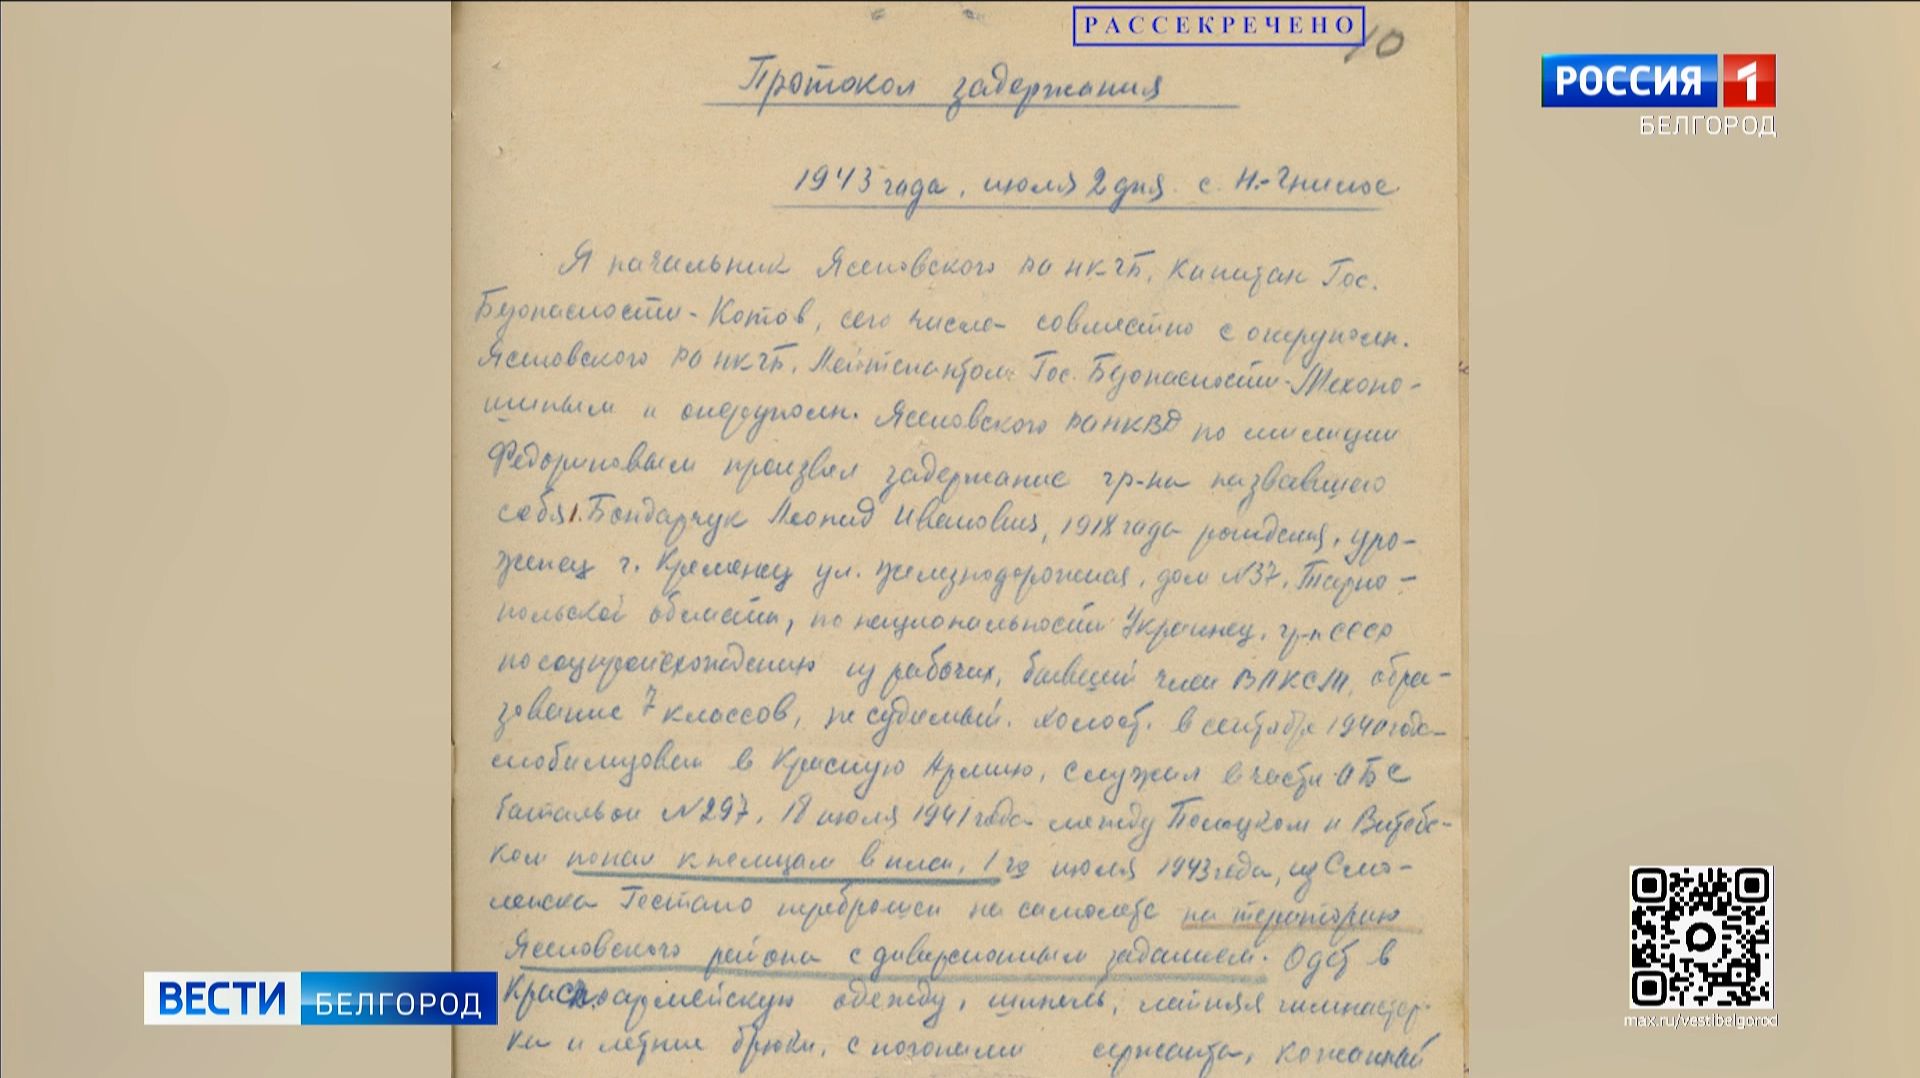 РАССЕКРЕЧЕНО
10
РОССИЯ 1
БЕЛГОРОД
Протокол задержания
1943 года, июля 2 дня. с. Н.-Гнилое
Я начальник Ясеновского РО НКГБ, Капитан Гос.
Безопасности-Котов, сего числа совместно с оперуполн.
Ясеновского РО НКГБ, Лейтенантом Гос. Безопасности-Мехоно-
шиным и оперуполн. Ясеновского РОНКВД по милиции
Федориновым произвел задержание гр-на назвавшего
себя 1. Бондарчук Леонид Иванович, 1918 года рождения, уро-
женец г. Кременец ул. Железнодорожная, дом N37, Терно-
польской области, по национальности Украинец, гр-н СССР
по соцпроисхождению из рабочих, бывший член ВЛКСМ, обра-
зование 7 классов, не судимый. Холост. в сентябре 1940 года
мобилизован в Красную Армию, служил в части ОБС
батальон N297, 18 июля 1941 года между Полоцком и Витебс-
ком попал к немцам в плен, 1го июля 1943 года, из Смо-
ленска Гестапо переброшен на самолете на територию
Ясеновского района с диверсионным заданием. Одет в
Красноармейскую одежду, шинель, летняя гимнастер-
ка и летние брюки, с погонами сержанта, кожаный
ВЕСТИ БЕЛГОРОД
max.ru/vestibelgorod